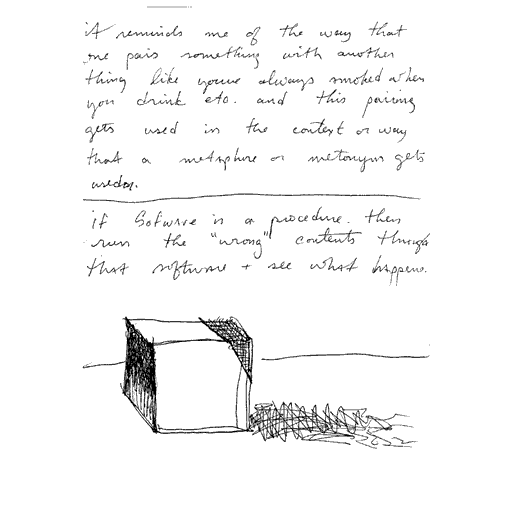 it reminds me of the way that
one pairs something with another
thing like youve always smoked when
you drink etc. and this pairing
gets used in the context or way
that a metaphore or metonym gets
used.
if Sofware is a procedure. then
run the "wrong" contents through
that software + see what happens.